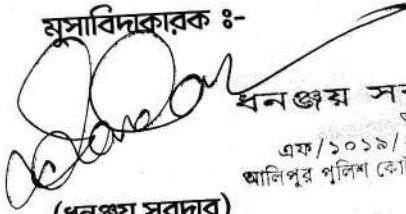 মুসাবিদাকারক ঃ-
ধনঞ্জয়
এফ/১০১৯/
আলিপুর পুলিশ
(ধনঞ্জয় সরদার)